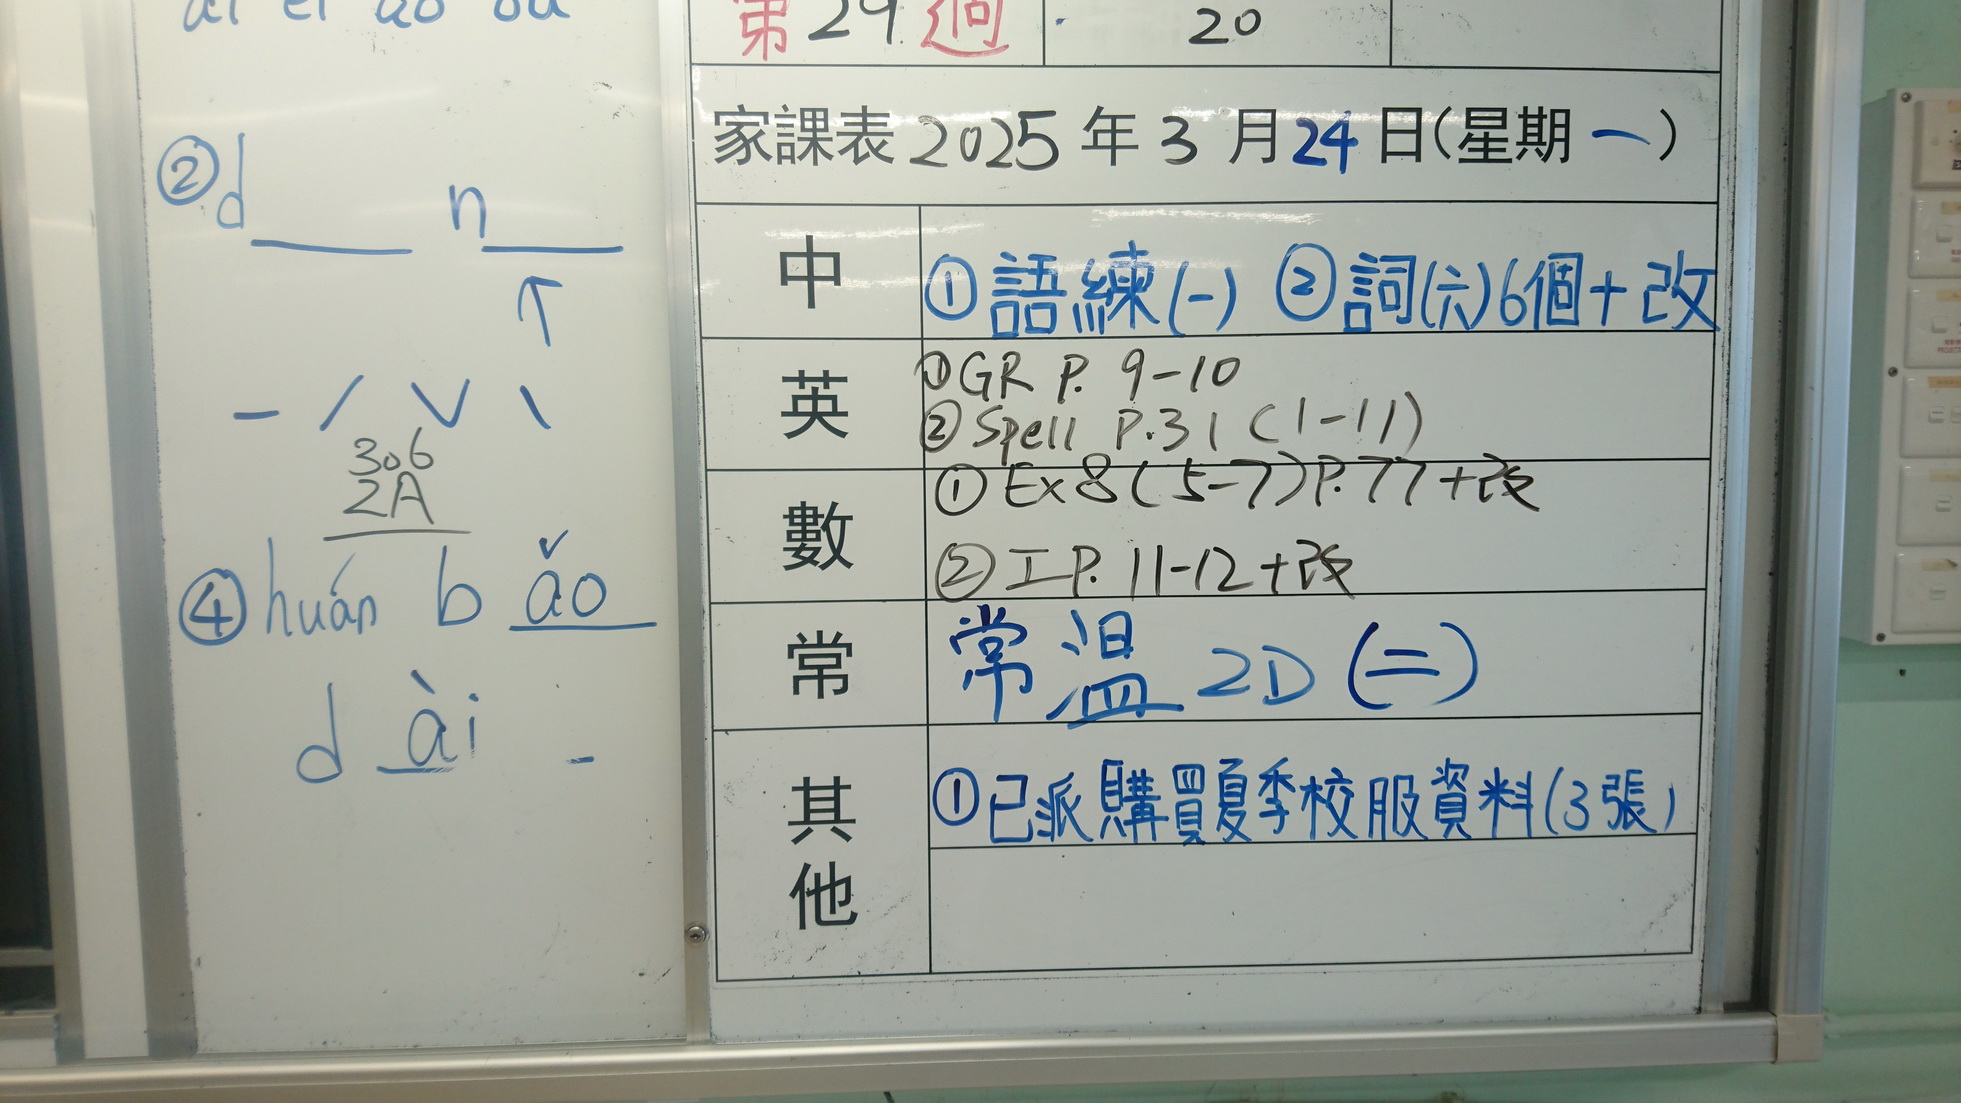 ai ei ao ou
② d____ n____
↑
ˉ ˊ ˇ ˋ
306
2A
④ huán b ǎo
d ài -
第 29 週
20
家課表 2025 年 3 月 24 日(星期 一 )
中
① 語練(一) ② 詞(六)6個+改
英
① GR P. 9-10
② Spell P.31 (1-11)
數
① Ex 8 (5-7) P.77 +改
② 工 P. 11-12 +改
常
常溫 2D (二)
其他
① 已派購買夏季校服資料(3張)